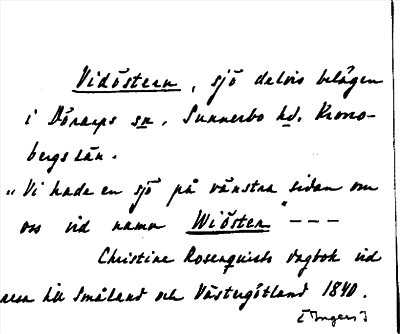 Vidöstern, sjö delvis belägen
i Dörarps sn, Sunnerbo hd. Krono-
bergs län.
"Vi hade en sjö på vänstra sidan om
oss vid namn Wiösten" ---
Christine Rosenquists dagbok vid
resa till Småland och Västergötland 1840.
[Ingers]